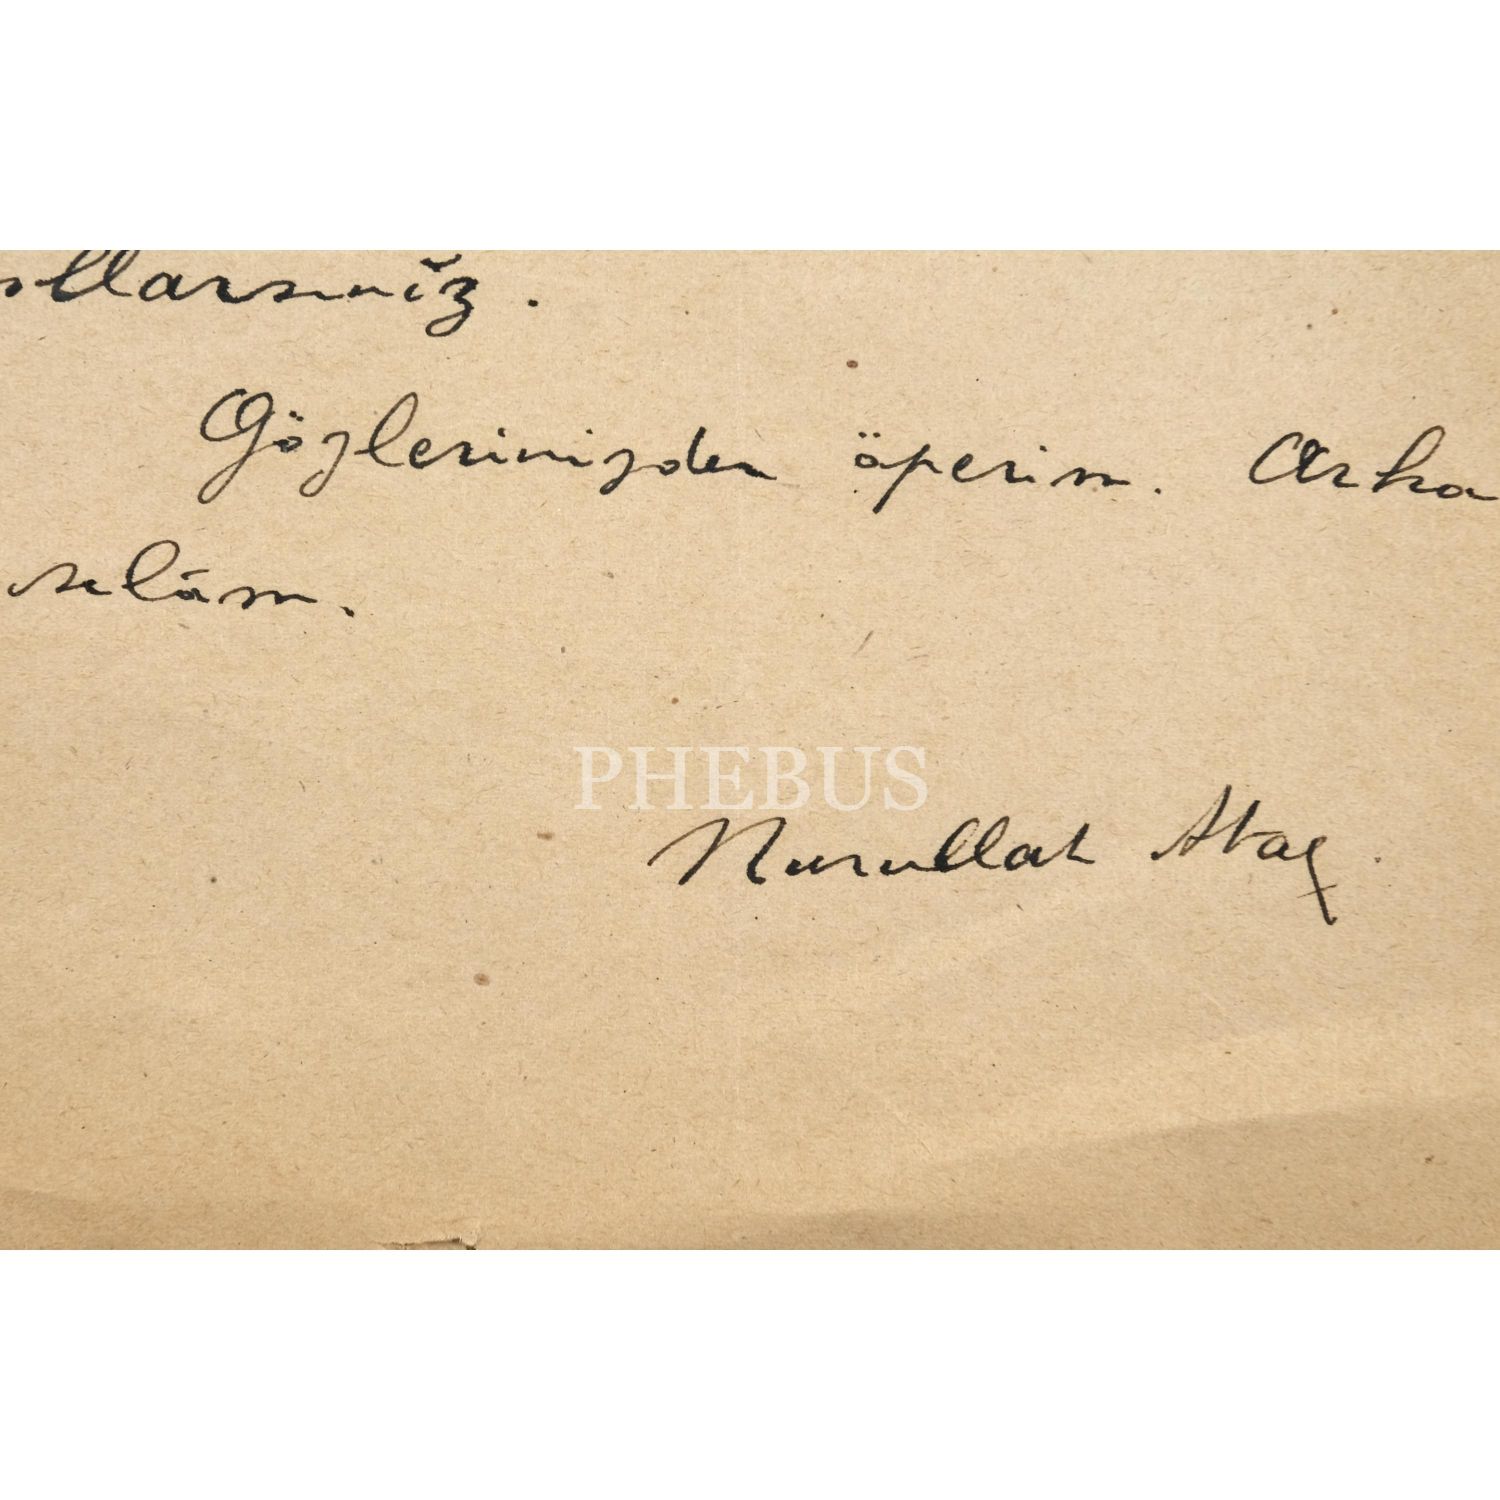 ollarsınız.
Gözlerinizden öperim. Arka
selâm.
PHEBUS
Nurullah Ataç.